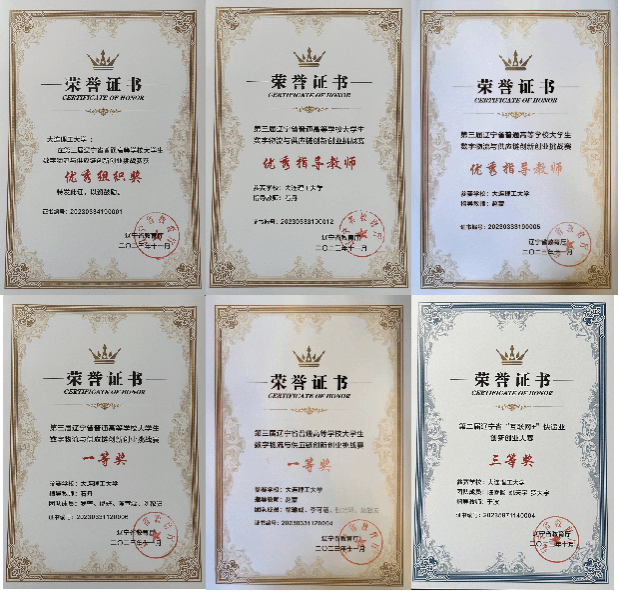 荣誉证书
CERTIFICATE OF HONOR
大连理工大学：
在第三届辽宁省普通高等学校大学生
数字物流与供应链创新创业挑战赛获
优秀组织奖
特发此证，以资鼓励。
证书编号：20230334190001
辽宁省教育厅
二〇二三年十一月
荣誉证书
CERTIFICATE OF HONOR
第三届辽宁省普通高等学校大学生
数字物流与供应链创新创业挑战赛
优秀指导教师
参赛学校：大连理工大学
指导教师：
证书编号：20230333190012
辽宁省教育厅
二〇二三年十一月
荣誉证书
CERTIFICATE OF HONOR
第三届辽宁省普通高等学校大学生
数字物流与供应链创新创业挑战赛
优秀指导教师
参赛学校：大连理工大学
指导教师：
证书编号：20230333190005
辽宁省教育厅
二〇二三年十一月
荣誉证书
CERTIFICATE OF HONOR
第三届辽宁省普通高等学校大学生
数字物流与供应链创新创业挑战赛
一等奖
参赛学校：大连理工大学
指导教师：
团队成员：
证书编号：
辽宁省教育厅
二〇二三年十一月
荣誉证书
CERTIFICATE OF HONOR
第三届辽宁省普通高等学校大学生
数字物流与供应链创新创业挑战赛
一等奖
参赛学校：大连理工大学
指导教师：
团队成员：
证书编号：
辽宁省教育厅
二〇二三年十一月
荣誉证书
CERTIFICATE OF HONOR
第二届辽宁省“互联网+”快递业
创新创业大赛
三等奖
参赛学校：大连理工大学
团队成员：
指导教师：
证书编号：
辽宁省教育厅
二〇二三年十月